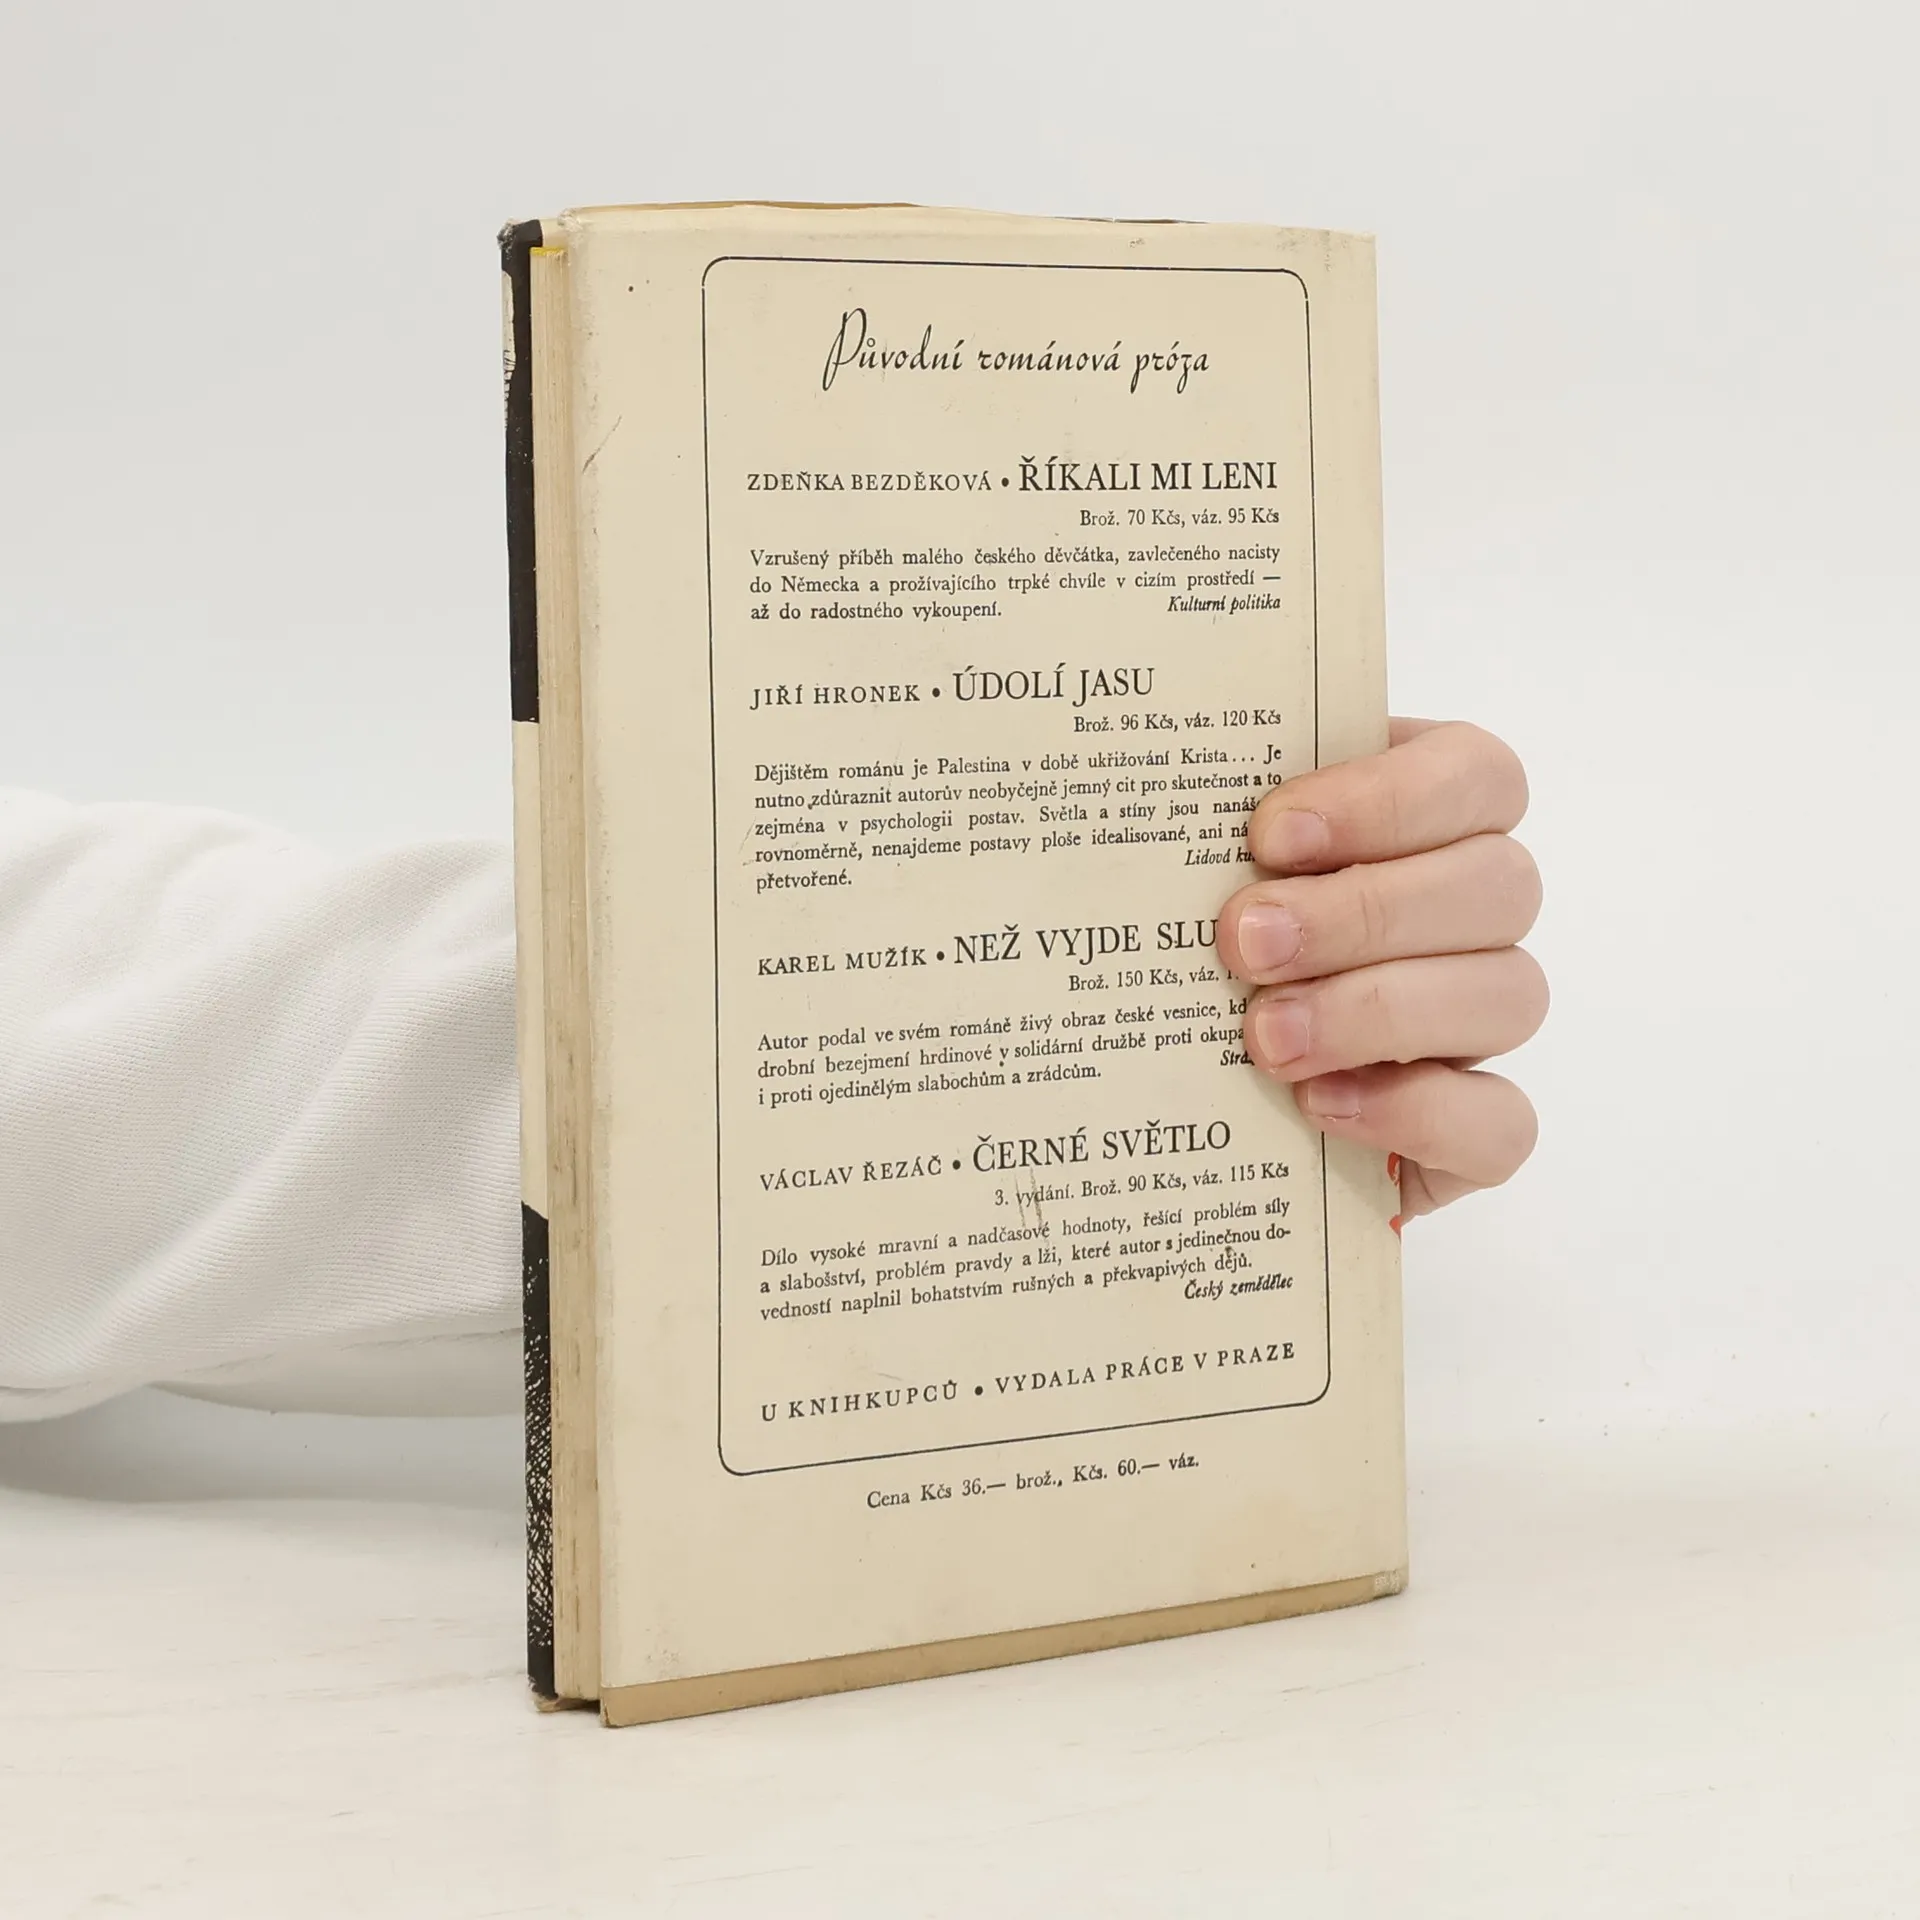 Původní románová próza
ZDEŇKA BEZDĚKOVÁ • ŘÍKALI MI LENI
Brož. 70 Kčs, váz. 95 Kčs
Vzrušený příběh malého českého děvčátka, zavlečeného nacisty
do Německa a prožívajícího trpké chvíle v cizím prostředí —
až do radostného vykoupení. Kulturní politika
JIŘÍ HRONEK • ÚDOLÍ JASU
Brož. 96 Kčs, váz. 120 Kčs
Dějištěm románu je Palestina v době ukřižování Krista... Je
nutno zdůraznit autorův neobyčejně jemný cit pro skutečnost a to
zejména v psychologii postav. Světla a stíny jsou
rovnoměrně, nenajdeme postavy ploše idealisované, ani
přetvořené. Lidová
KAREL MUŽÍK • NEŽ VYJDE
Brož. 150 Kčs, váz.
Autor podal ve svém románě živý obraz české vesnice,
drobní bezejmení hrdinové v solidární družbě proti
i proti ojedinělým slabochům a zrádcům.
VÁCLAV ŘEZÁČ • ČERNÉ SVĚTLO
3. vydání. Brož. 90 Kčs, váz. 115 Kčs
Dílo vysoké mravní a nadčasové hodnoty, řešící problém síly
a slabošství, problém pravdy a lži, které autor s jedinečnou do-
vedností naplnil bohatstvím rušných a překvapivých dějů.
Český zemědělec
U KNIHKUPCŮ • VYDALA PRÁCE V PRAZE
Cena Kčs 36.— brož., Kčs. 60.— váz.